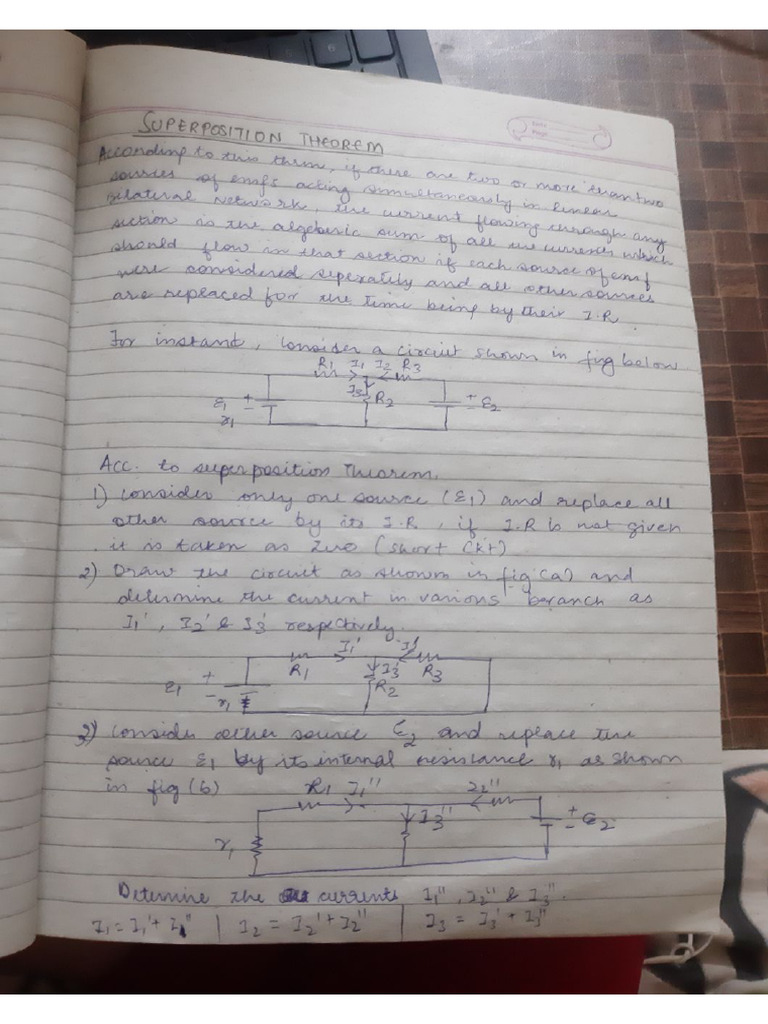 SUPERPOSITION THEOREM
According to this thrm, if there are two or more than two
sources of emfs acting simultaneously in linear
bilateral network the current flowing through any
section is the algebric sum of all the currents which
should flow in that section if each source of emf
were considered seperatly and all other sources
are replaced for the time being by their I.R.
For instant, consider a circuit shown in fig below.
R1 I1 I2 R3
I3 R2
ε1 + - + - ε2
r1
Acc. to superposition Theorem,
1) consider only one source (ε1) and replace all
other source by its I.R, if I.R is not given
it is taken as zero (short ckt)
2) Draw the circuit as shown in fig (a) and
determine the current in various branch as
I1', I2' & I3' respectively.
R1 I1' R3
ε1 + - r1 I3' R2
3) consider other source ε2 and replace the
source ε1 by its internal resistance r1 as shown
in fig (b) R1 I1'' I2''
I3'' + - ε2
r1
Determine the currents I1'', I2'' & I3''.
I1 = I1' + I1'' | I2 = I2' + I2'' | I3 = I3' + I3''